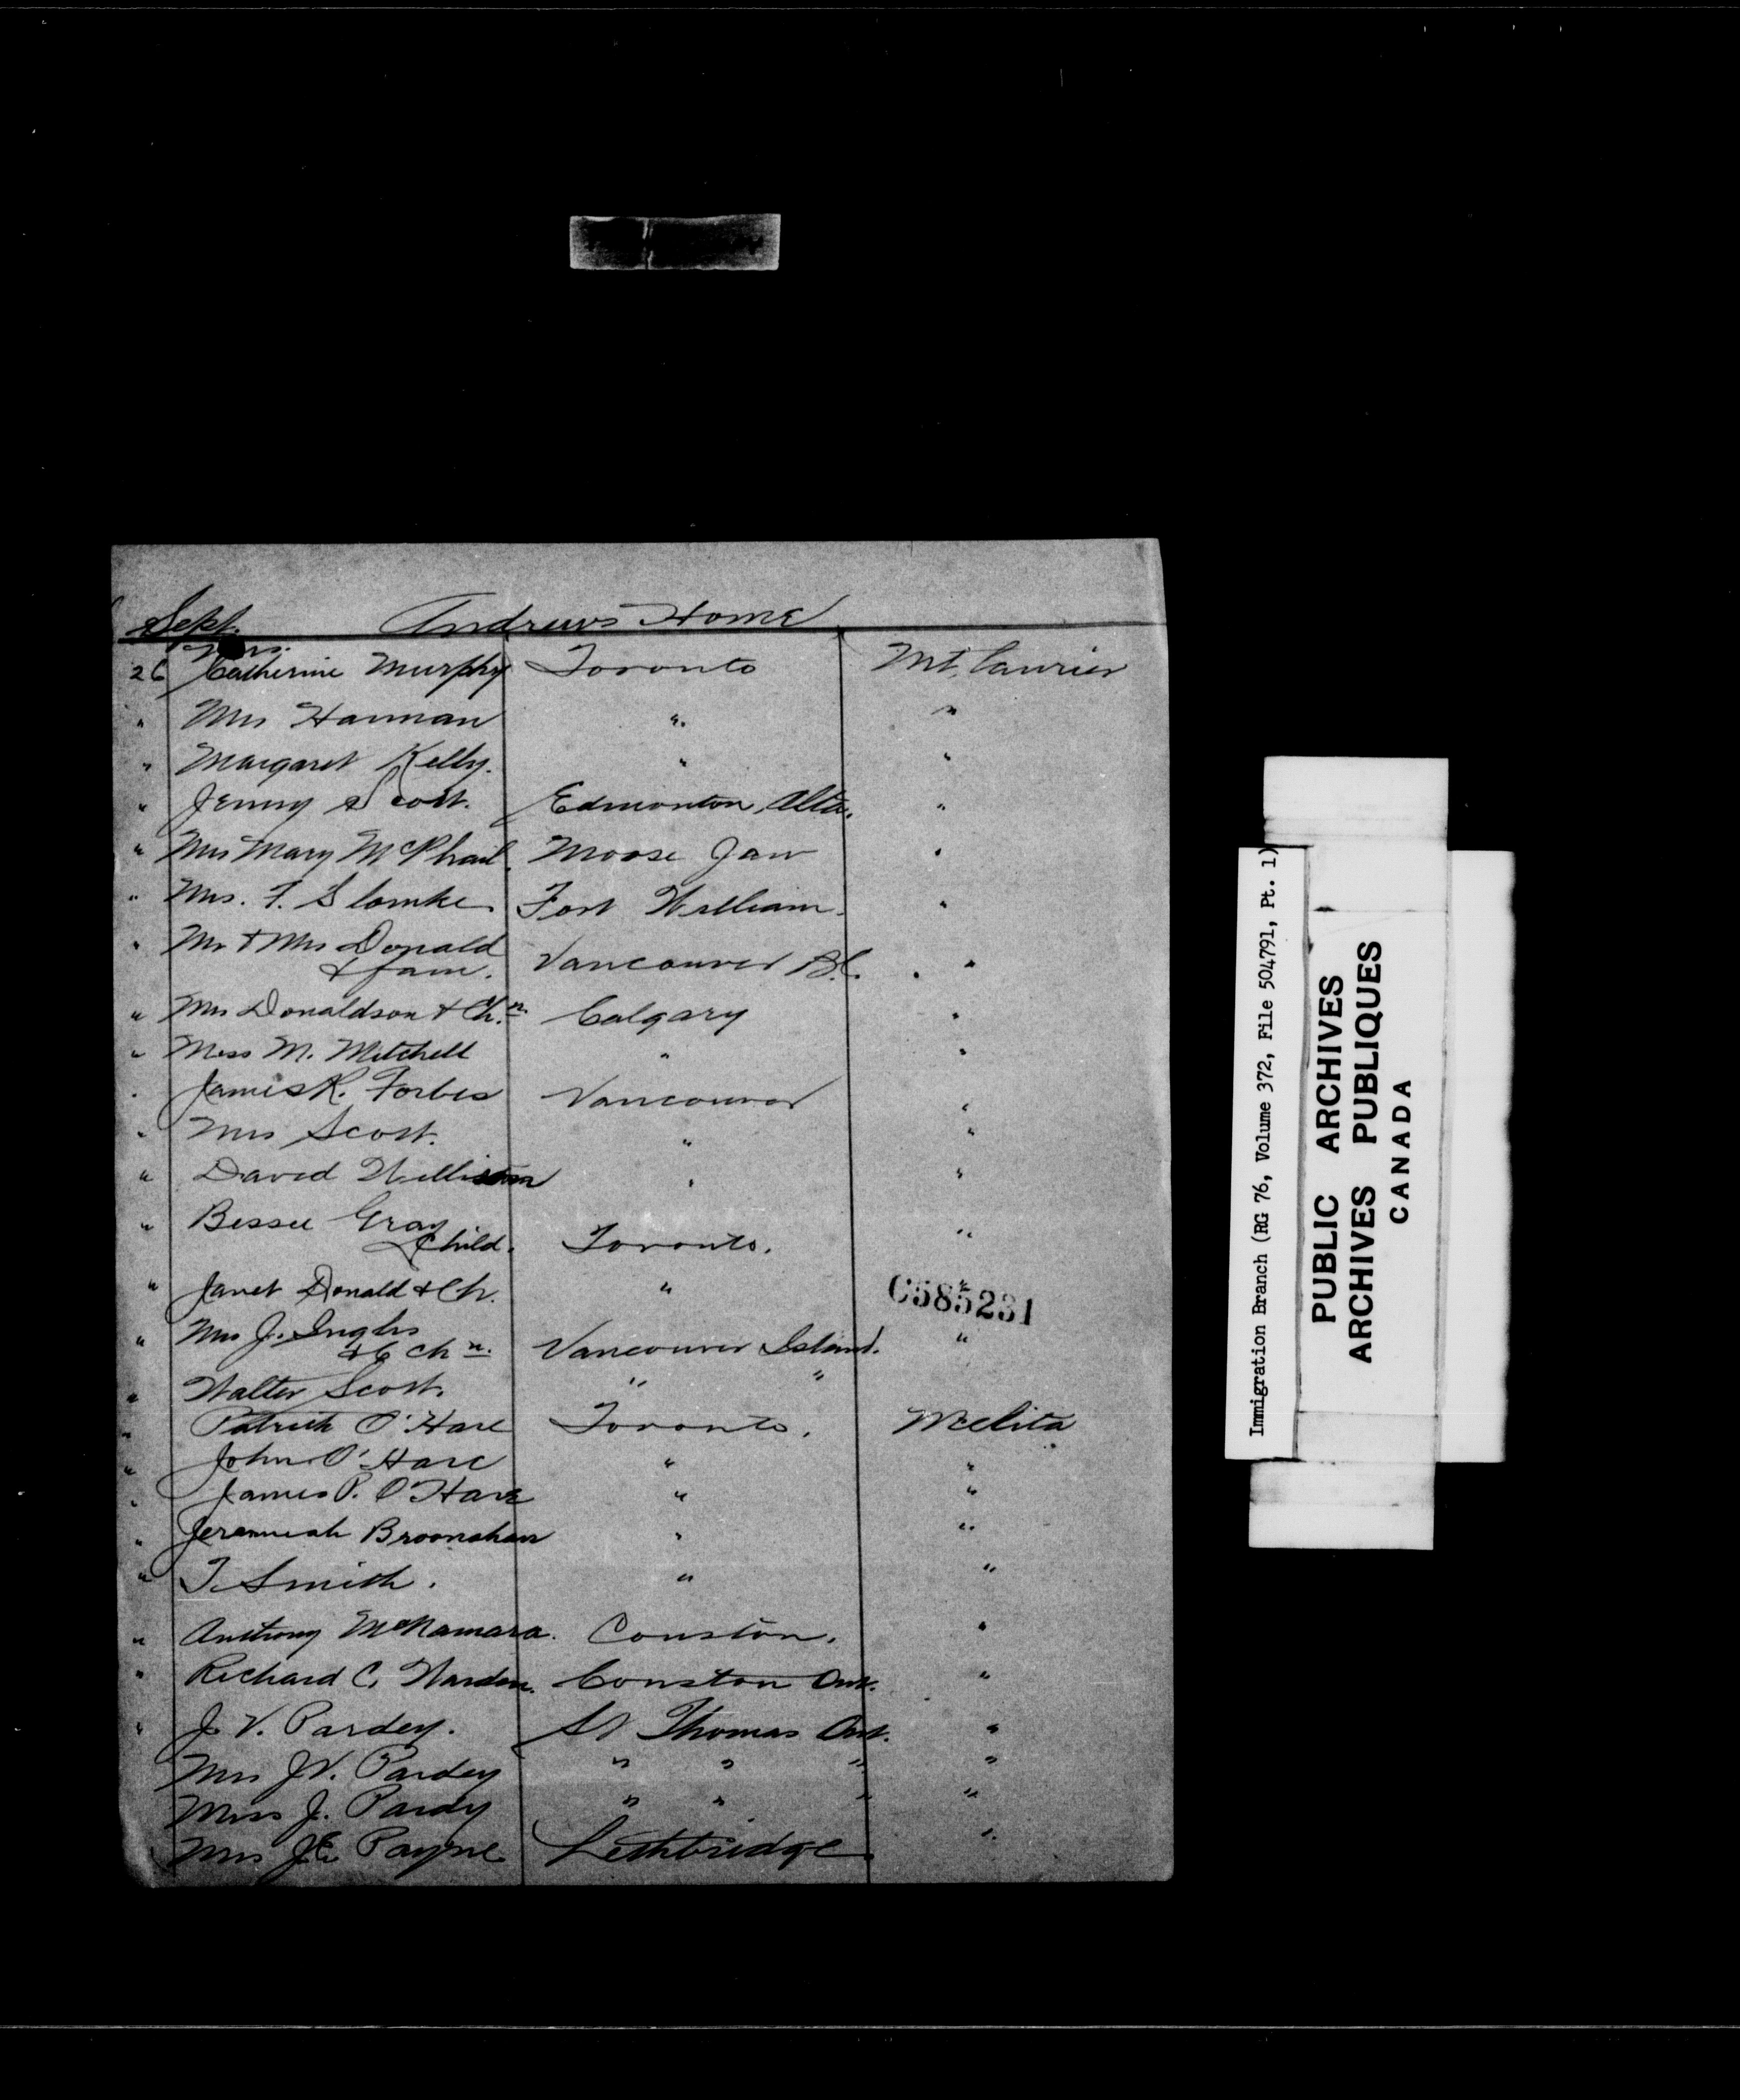 Sept. Andrews Home
Mrs.
26 Catherine Murphy Toronto Mt. Laurier
" Mrs Hannan " "
" Margaret Kelly. " "
" Jenny Scott. Edmonton, Alta. "
" Mrs Mary McPhail. Moose Jaw "
" Mrs. F. Slomke Fort William. "
" Mr & Mrs Donald
& fam. Vancouver B.C. "
" Mrs Donaldson & Chn. Calgary "
" Miss M. Mitchell " "
" James R. Forbes Vancouver "
" Mrs Scott. " "
" David Williston " "
" Bessie Gray "
& Child. Toronto.
" Janet Donald & Ch. " "
C585231
" Mrs J. Inglis "
& 6 chn. Vancouver Island.
" Walter Scott. " "
" Patrick O'Hare Toronto. Melita
" John O'Hare " "
" James P. O'Hare " "
" Jeremiah Broonahan " "
" T. Smith. " "
" Anthony McNamara. Conston. "
" Richard C. Warden. Conston Ont. "
" J. V. Pardey. St Thomas Ont. "
Mrs J V. Pardey " " " "
Miss J. Pardy " " " "
Mrs J E Payne Lethbridge. "
Immigration Branch (RG 76, Volume 372, File 504791, Pt. 1)
PUBLIC ARCHIVES
ARCHIVES PUBLIQUES
CANADA